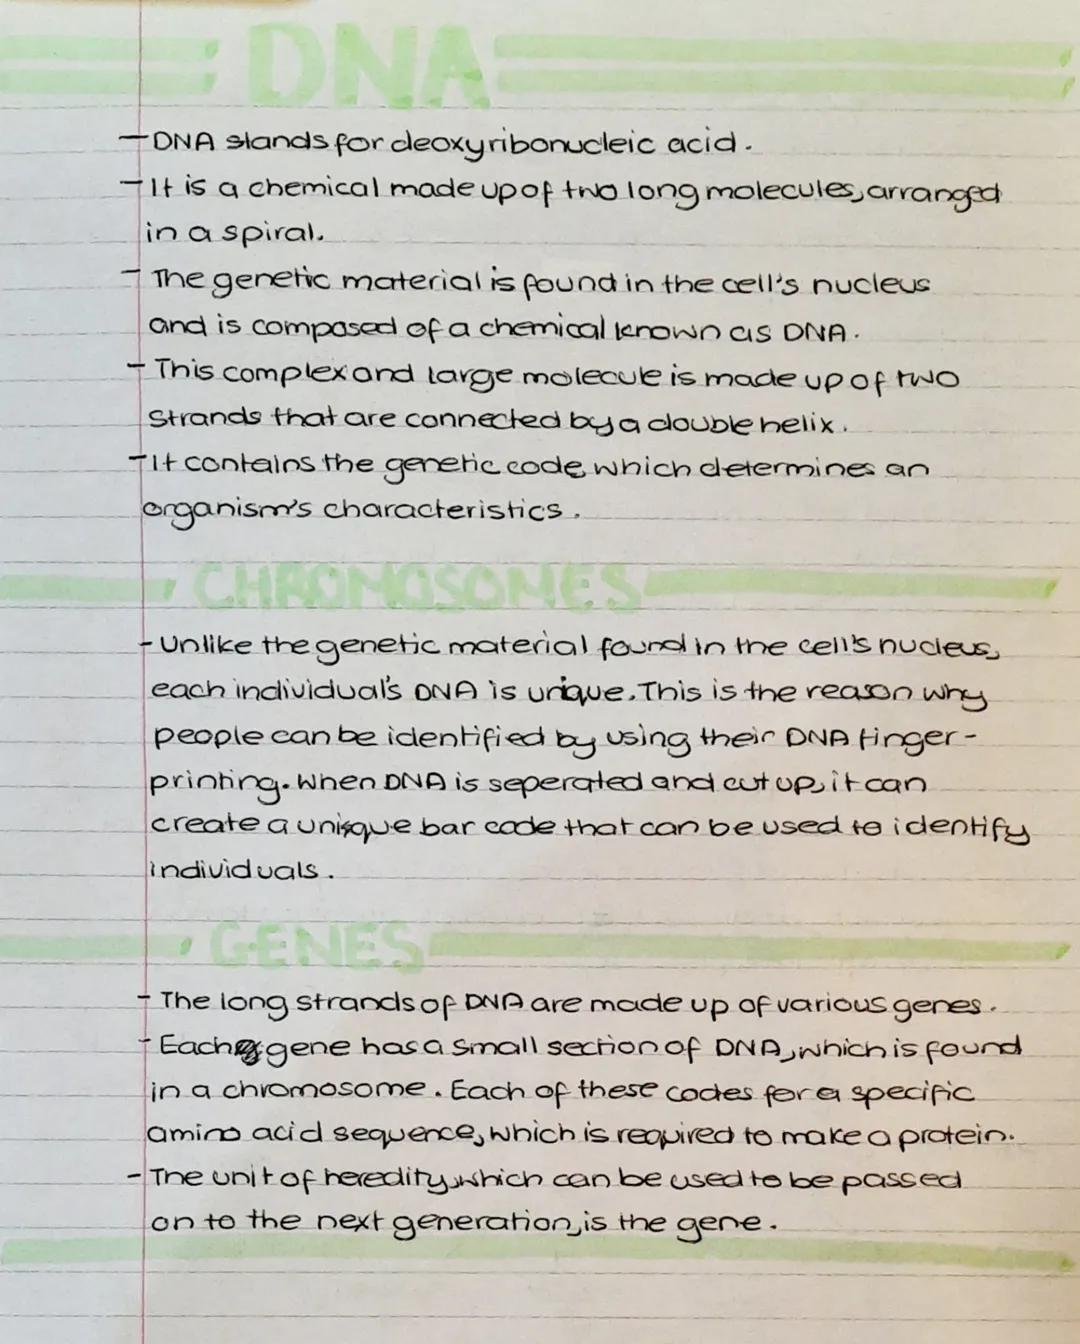 DNA
- DNA stands for deoxyribonucleic acid.
- It is a chemical made up of two long molecules, arranged
in a spiral.
- The genetic material is found in the cell's nucleus
and is composed of a chemical known as DNA.
- This complex and large molecule is made up of two
strands that are connected by a double helix.
- It contains the genetic code, which determines an
organism's characteristics.
CHROMOSOMES
- Unlike the genetic material found in the cell's nucleus,
each individual's DNA is unique. This is the reason why
people can be identified by using their DNA finger-
printing. When DNA is seperated and cut up, it can
create a unique bar code that can be used to identify
individuals.
GENES
- The long strands of DNA are made up of various genes.
- Each gene has a small section of DNA, which is found
in a chromosome. Each of these codes for a specific
amino acid sequence, which is required to make a protein.
- The unit of heredity, which can be used to be passed
on to the next generation, is the gene.